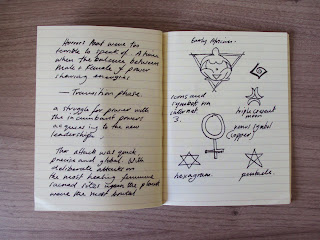 Horrors that were too
terrible to speak of. A time
when the balance between
Male & Female of power
& having energies
— Transition phase.
a struggle for power with
the incumbent powers
to the new
leadership,
The attack was quick
precise and global. With
deliberate attacks on
the most healing feminine
sacred sites upon the planet
were the most brutal
Early Morning.
icons and
symbols on
internet
3.
triple crescent
moon
venus symbol
(copper)
hexagram.
pentacle.